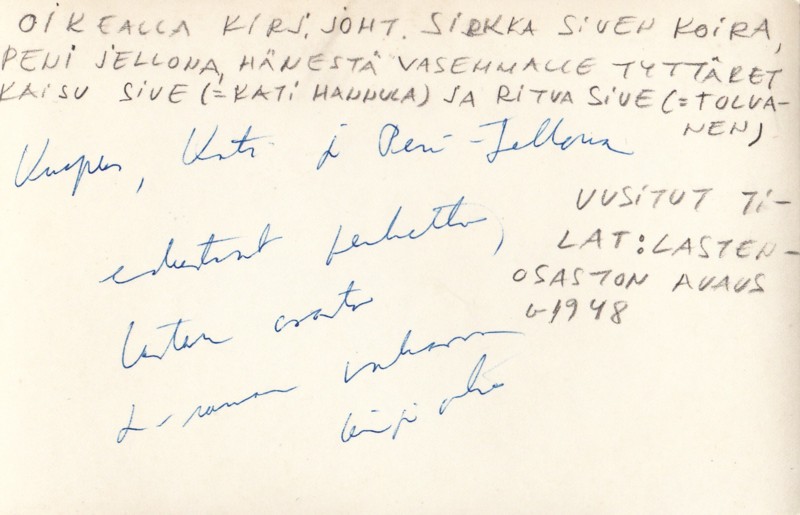 OIKEALLA KIRJ. JOHT. SIRKKA SIVEN KOIRA,
PENI JELLONA, HÄNESTÄ VASEMMALLE TYTTÄRET
KAISU SIVE (=KATI HANNULA) JA RITVA SIVE (=TOLVA-
NEN)
Kati ja Peni-Jellona
edustivat perhettä,
lasten osasto
UUSITUT TI-
LAT: LASTEN-
OSASTON AVAUS
1948